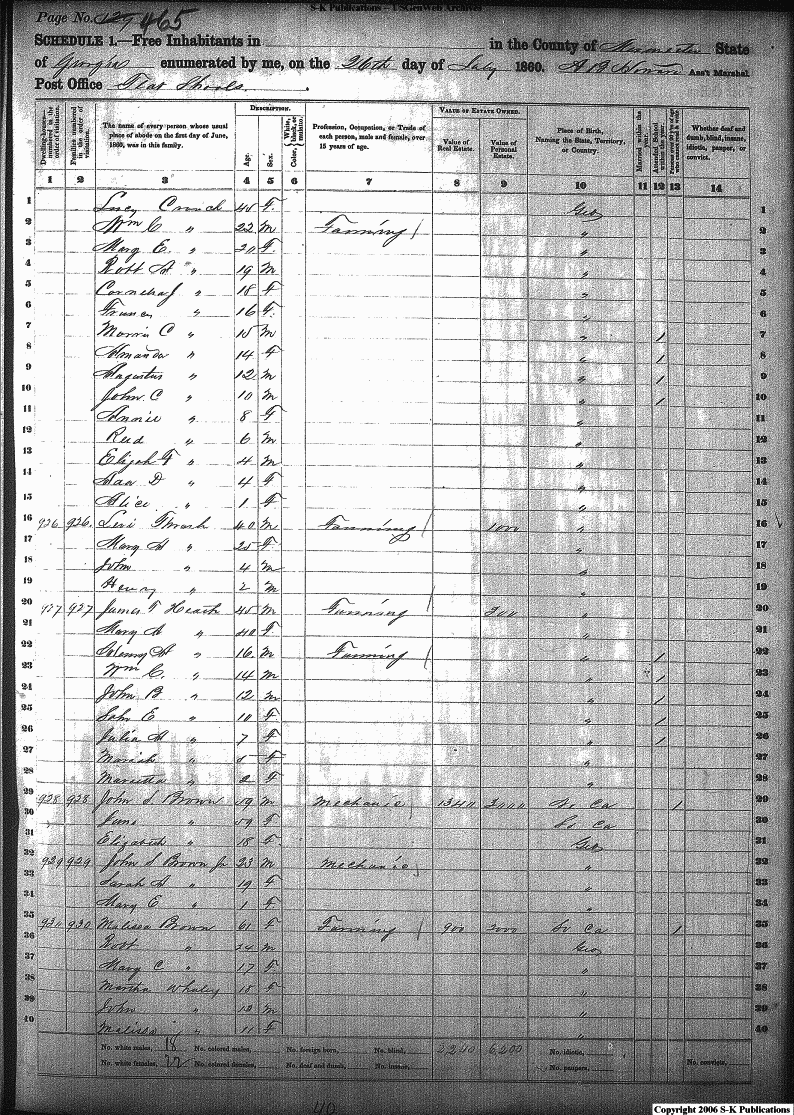 S-K Publications - USGenWeb Archives
Page No. 129 465
SCHEDULE 1.—Free Inhabitants in in the County of State
of Georgia enumerated by me, on the 26th day of July 1860. Ass't Marshal
Post Office Flat Shoals
DESCRIPTION. VALUE OF ESTATE OWNED.
Dwelling-houses—numbered in the order of visitation. Families numbered in the order of visitation. The name of every person whose usual place of abode on the first day of June, 1860, was in this family. Age. Sex. Color, White, black, or mulatto. Profession, Occupation, or Trade of each person, male and female, over 15 years of age. Value of Real Estate. Value of Personal Estate. Place of Birth, Naming the State, Territory, or Country. Married within the year. Attended School within the year. Whether deaf and dumb, blind, insane, idiotic, pauper, or convict.
1 2 3 4 5 6 7 8 9 10 11 12 13 14
1 Lucy Crouch 45 F Geo 1
2 Wm C " 22 M Farming " 2
3 Mary E. " 20 F " 3
4 Robt A " 19 M " 4
5 " 18 F " 5
6 Frances " 16 F " 6
7 Morris C " 15 M " 1 7
8 Amanda " 14 F " 1 8
9 Augustus " 12 M " 1 9
10 John C " 10 M " 1 10
11 Annie " 8 F " 11
12 Reid " 6 M " 12
13 Elijah F " 4 M " 13
14 D " 4 F " 14
15 Alice " 1 F " 15
16 926 926 Levi Thrash 40 M Farming 1000 " 16
17 Mary A " 25 F " 17
18 John " 4 M " 18
19 Henry " 2 M " 19
20 927 927 James T Heath 45 M Farming 200 " 20
21 Mary A " 40 F " 21
22 A " 16 M Farming " 1 22
23 Wm C. " 14 M " 1 23
24 John B " 12 M " 1 24
25 E " 10 F " 1 25
26 Julia A " 7 F " 1 26
27 Mariah " 5 F " 27
28 Marietta " 2 F " 28
29 928 928 John S Brown 59 M Mechanic 1340 3000 So Ca 1 29
30 Jane " 59 F So Ca 30
31 Elizabeth " 18 F Geo 31
32 929 929 John S Brown Jr 23 M Mechanic " 32
33 Sarah A " 19 F " 33
34 Mary E " 1 F " 34
35 930 930 Malissa Brown 61 F Farming 900 2000 So Ca 1 35
36 Robt " 24 M Geo 36
37 Mary C " 17 F " 37
38 Martha Whaley 15 F " 38
39 John " 10 M " 39
40 Malissa " 11 F " 40
No. white males, 18 No. colored males, No. foreign born, No. blind, 2240 6200 No. idiotic,
No. white females, 22 No. colored females, No. deaf and dumb, No. insane, No. paupers, No. convicts,
40
Copyright 2006 S-K Publications